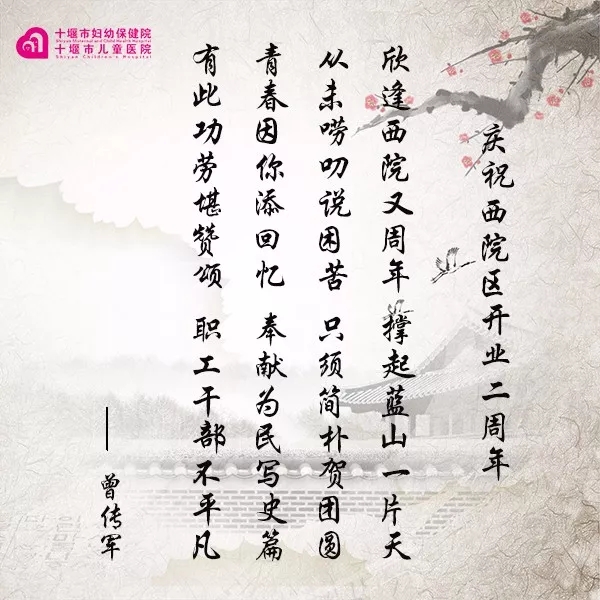 十堰市妇幼保健院
Shiyan Maternal and Child Health Hospital
十堰市儿童医院
Shiyan Children's Hospital
庆祝西院区开业二周年
欣逢西院又周年 撑起蓝山一片天
从未唠叨说困苦 只须简朴贺团圆
青春因你添回忆 奉献为民写史篇
有此功劳堪赞颂 职工干部不平凡
—— 曾传军